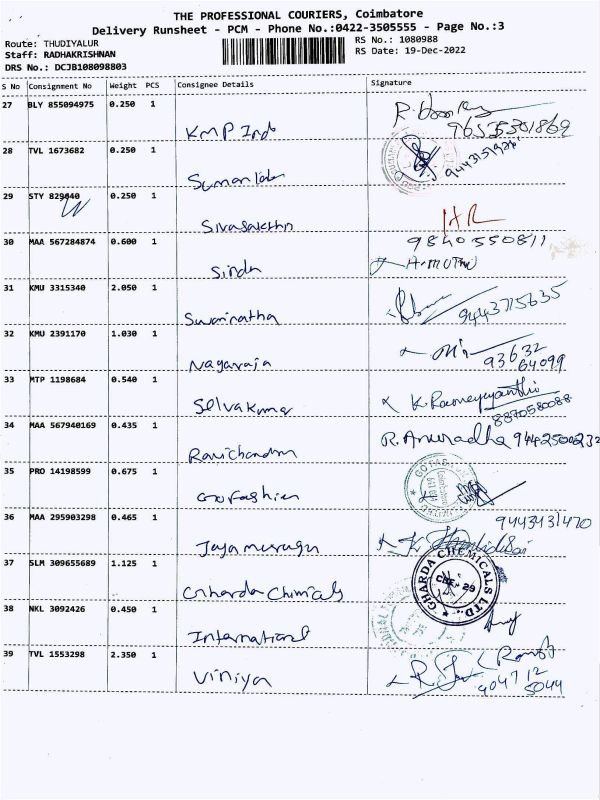 THE PROFESSIONAL COURIERS, Coimbatore
Delivery Runsheet - PCM - Phone No.:0422-3505555 - Page No.:3
Route: THUDIYALUR
RS No.: 1080988
Staff: RADHAKRISHNAN
RS Date: 19-Dec-2022
DRS No.: DCJB108098803
S No Consignment No Weight PCS Consignee Details Signature
27 BLY 855094975 0.250 1
KMP Ind
9655301869
28 TVL 1673682 0.250 1
29 STY 829040 0.250 1
Sivasakthi
HR
30 MAA 567284874 0.600 1
9840550811
Sindh
A.MUTHU
31 KMU 3315340 2.050 1
9443715635
32 KMU 2391170 1.030 1
Nagaraja
93632
64099
33 MTP 1198684 0.540 1
Selvakumar
8870580088
34 MAA 567940169 0.435 1
R. Anuradha 9442500232
Ravichandran
35 PRO 14198599 0.675 1
Go fashion
36 MAA 295903298 0.465 1
9443431470
Jayamurugu
37 SLM 309655689 1.125 1
GHARDA CHEMICALS LTD.
CBE-29
Gharda Chimicals
38 NKL 3092426 0.450 1
International
39 TVL 1553298 2.350 1
Viniya
904712
5044